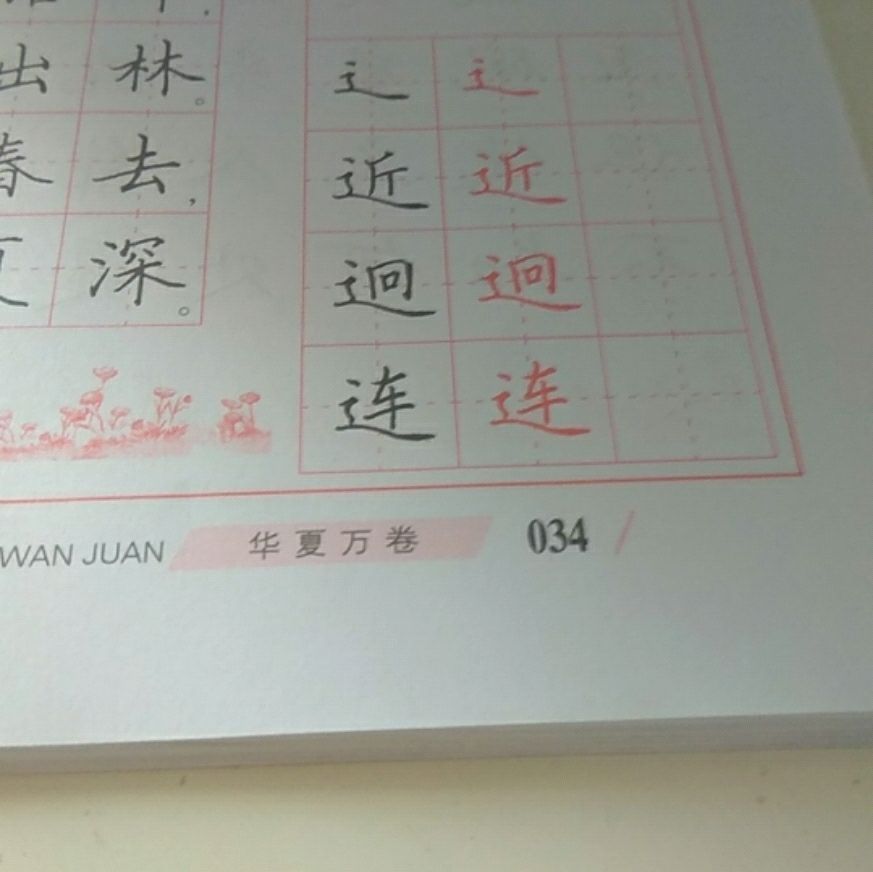 出林。
春去，
深。
辶 辶
近 近
迥 迥
连 连
WAN JUAN 华夏万卷 034